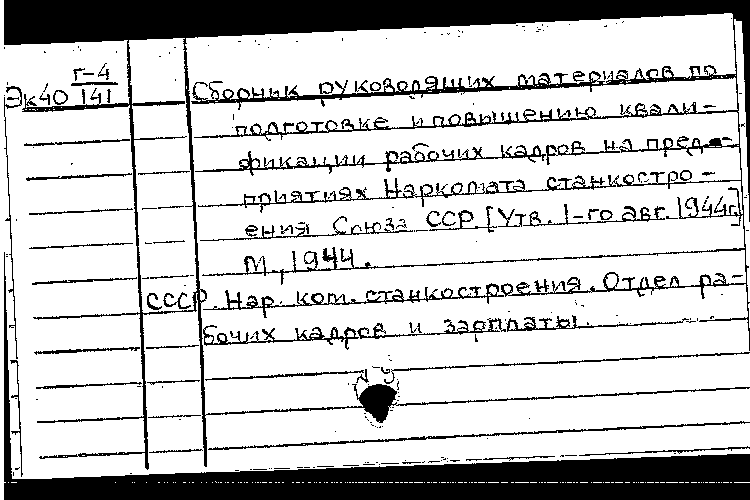 Эк40 г-4/141
Сборник руководящих материалов по
подготовке и повышению квали-
фикации рабочих кадров на пред-
приятиях Наркомата станкостро-
ения Союза ССР. [Утв. 1-го авг. 1944г.]
М., 1944.
СССР. Нар. ком. станкостроения. Отдел ра-
бочих кадров и зарплаты.